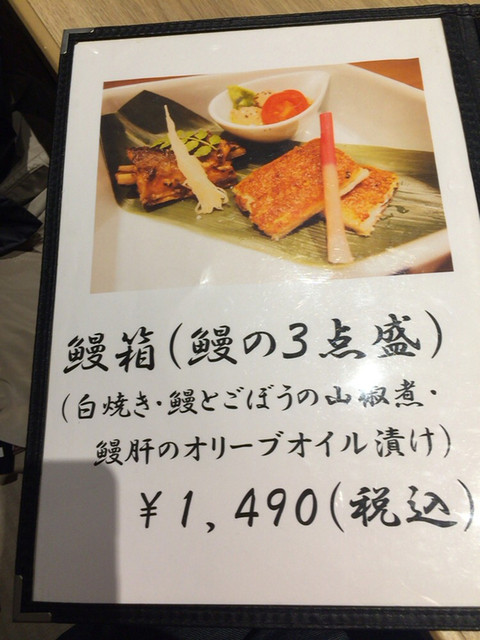 鰻箱(鰻の3点盛)
(白焼き・鰻とごぼうの山椒煮・
鰻肝のオリーブオイル漬け)
¥1,490(税込)